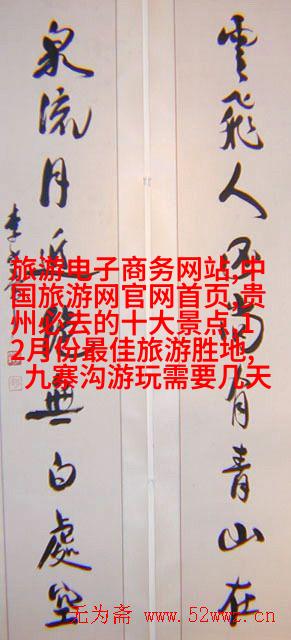 雲飛人尚有青山在
泉流月無白處空
李
旅游电子商务网站,中
国旅游网官网首页,贵
州必去的十大景点,
2月份最佳旅游胜地,
九寨沟游玩需要几天
无为斋 www.52wwz.cn